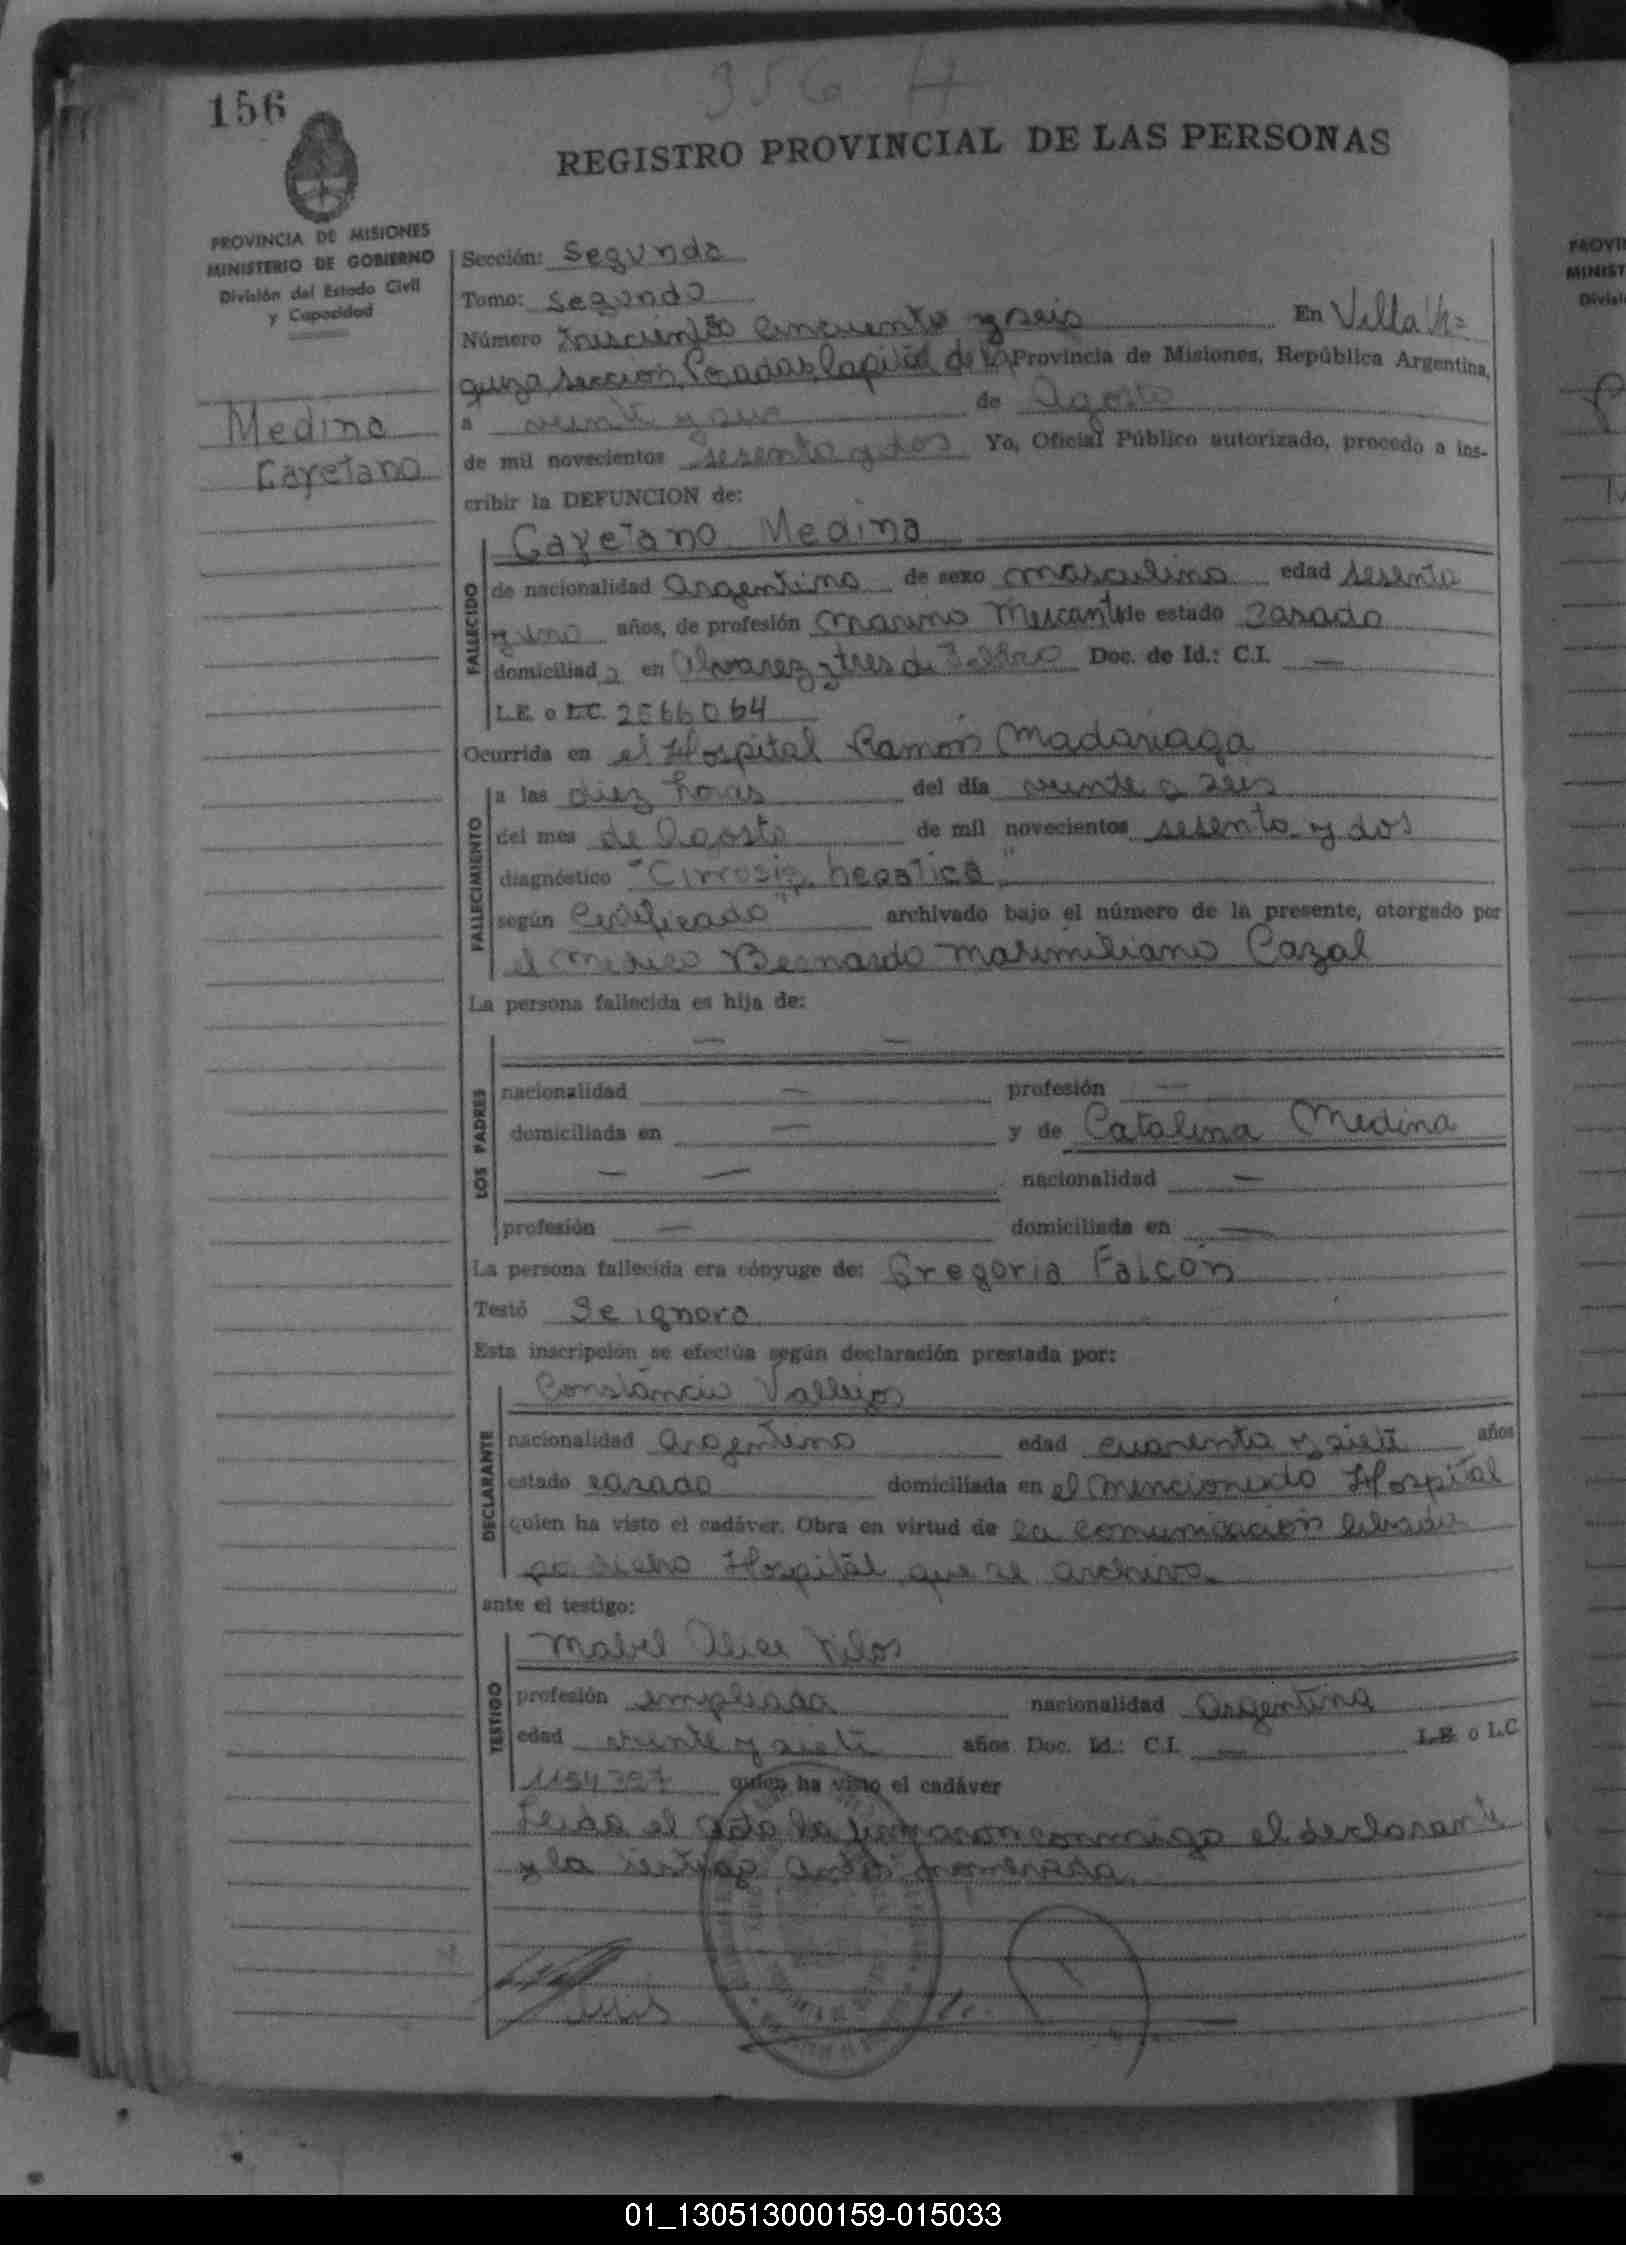 156
356 H
REGISTRO PROVINCIAL DE LAS PERSONAS
PROVINCIA DE MISIONES
MINISTERIO DE GOBIERNO
División del Estado Civil
y Capacidad
Medina
Cayetano
Sección: Segunda
Tomo: Segundo
Número Trescientos cincuenta y seis En Villa Ur=
quiza, seccion Posadas, Capital de la Provincia de Misiones, República Argentina,
a veinte y seis de Agosto
de mil novecientos sesenta y dos Yo, Oficial Público autorizado, procedo a ins-
cribir la DEFUNCION de:
Cayetano Medina
FALLECIDO
de nacionalidad Argentina de sexo masculino edad sesenta
y uno años, de profesión Marino Mercante de estado casado
domiciliad o en Alvarez y tres de Febrero Doc. de Id.: C.I. —
L.E. o L.C. 2566064
Ocurrida en el Hospital Ramón Madariaga
FALLECIMIENTO
a las diez horas del día veinte y seis
del mes de Agosto de mil novecientos sesenta y dos
diagnóstico "Cirrosis hepatica"
según Certificado archivado bajo el número de la presente, otorgado por
el medico Bernardo Maximiliano Cazal
La persona fallecida es hija de:
— —
LOS PADRES
nacionalidad — profesión —
domiciliada en — y de Catalina Medina
— — nacionalidad —
profesión — domiciliada en —
La persona fallecida era cónyuge de: Gregoria Falcón
Testó Se ignora
Esta inscripción se efectúa según declaración prestada por:
Constancio Vallejos
DECLARANTE
nacionalidad Argentina edad cuarenta y siete años
estado casado domiciliada en el mencionado Hospital
quien ha visto el cadáver. Obra en virtud de la comunicación librada
por dicho Hospital que se archiva.
ante el testigo:
Mabel Alice
TESTIGO
profesión empleada nacionalidad Argentina
edad veinte y siete años Doc. Id.: C.I. — L.E. o L.C
quien ha visto el cadáver
Leida el acta la firmaron conmigo el declarante
y la testigo antes nombrada.
PROVIN
MINIST
Divisi
01_130513000159-015033